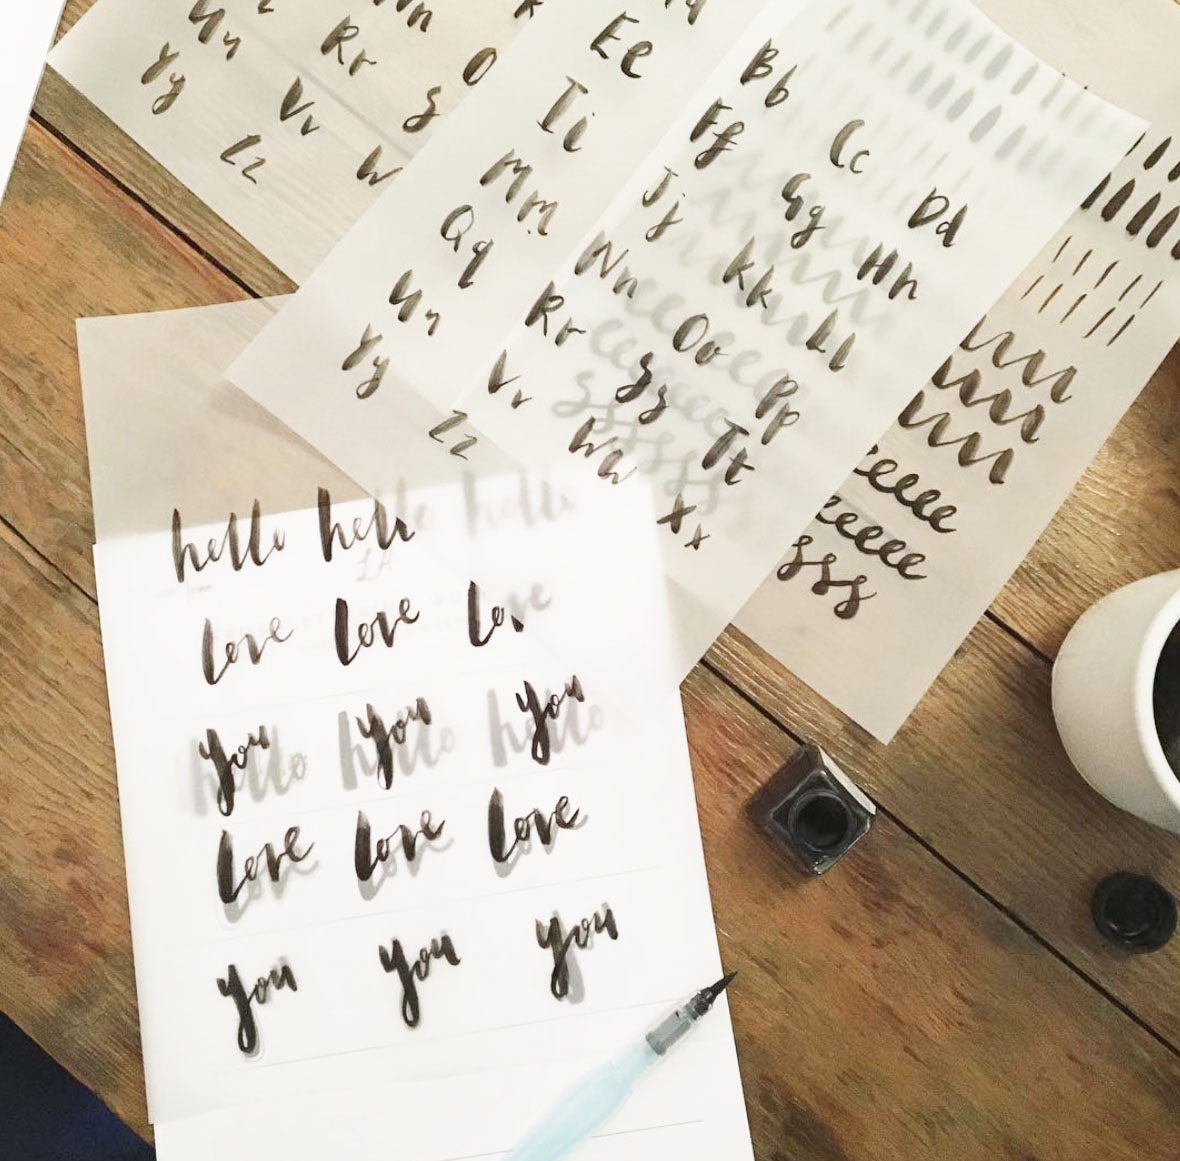 Rr
O
Yy
Vv
S
Zz
W
Ee
Ii
Mm
Qq
Yy
Zz
Bb
Cc
Dd
Ff
Gg
Hh
Jj
Kk
Ll
Nn
Oo
Pp
Rr
Ss
Tt
Vv
Ww
Xx
eeeee
eeeee
sss
hello hello hello
love love love
you you you
hello hello hello
love love love
you you you